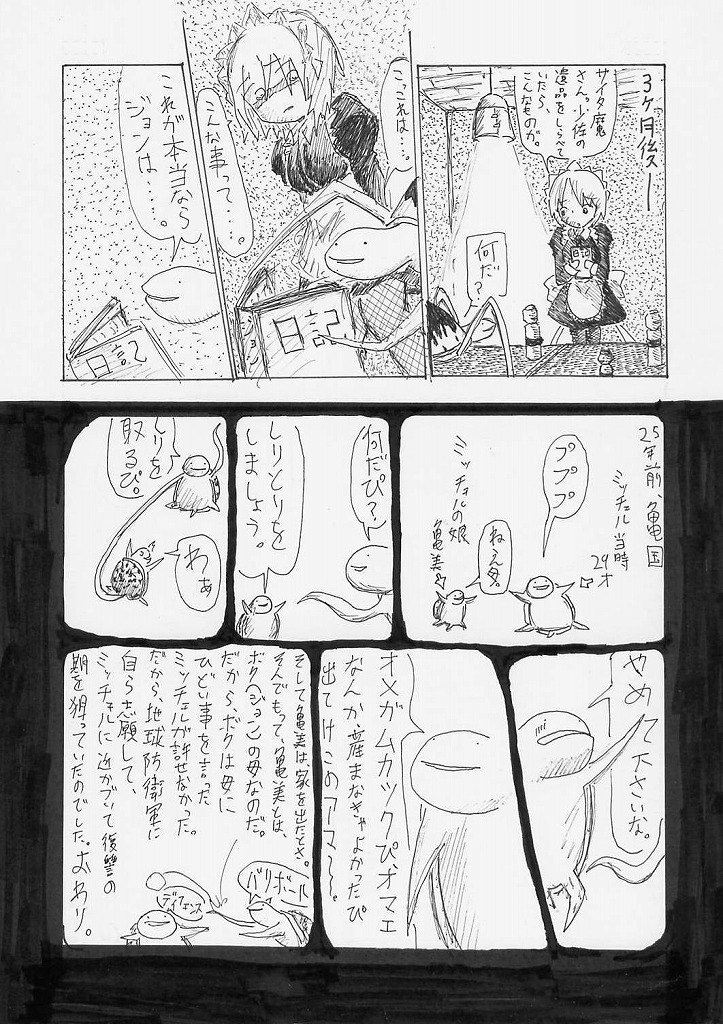 3ヶ月後ー
サイタ魔
さん。少佐の
遺品をしらべて
いたら、
こんなものが。
何だ?
こっこれは…。
こんな事って…。
日記
これが本当なら
ジョンは……。
日記
25年前、亀国
ミッチェル当時
29才
プププ
ねぇ父。
ミッチェルの娘
亀美
何だぴ?
しりとりを
しましょう。
しりを
取るぴ。
わぁ
やめて下さいな。
オメガムカックぴオマエ
なんか、産まなきゃよかったぴ
出てけこのアマ〜〜。
そして亀美は、家を出たとさ。
そんでもって、亀美とは、
ボク(ジョン)の母なのだ。
だから、ボクは母に
ひどい事を言った
ミッチェルが許せなかった。
だから、地球防衛軍に
自ら志願して、
ミッチェルに近かづいて復讐の
期を狙っていたのでした。おわり。
バリボール
ディフェンス